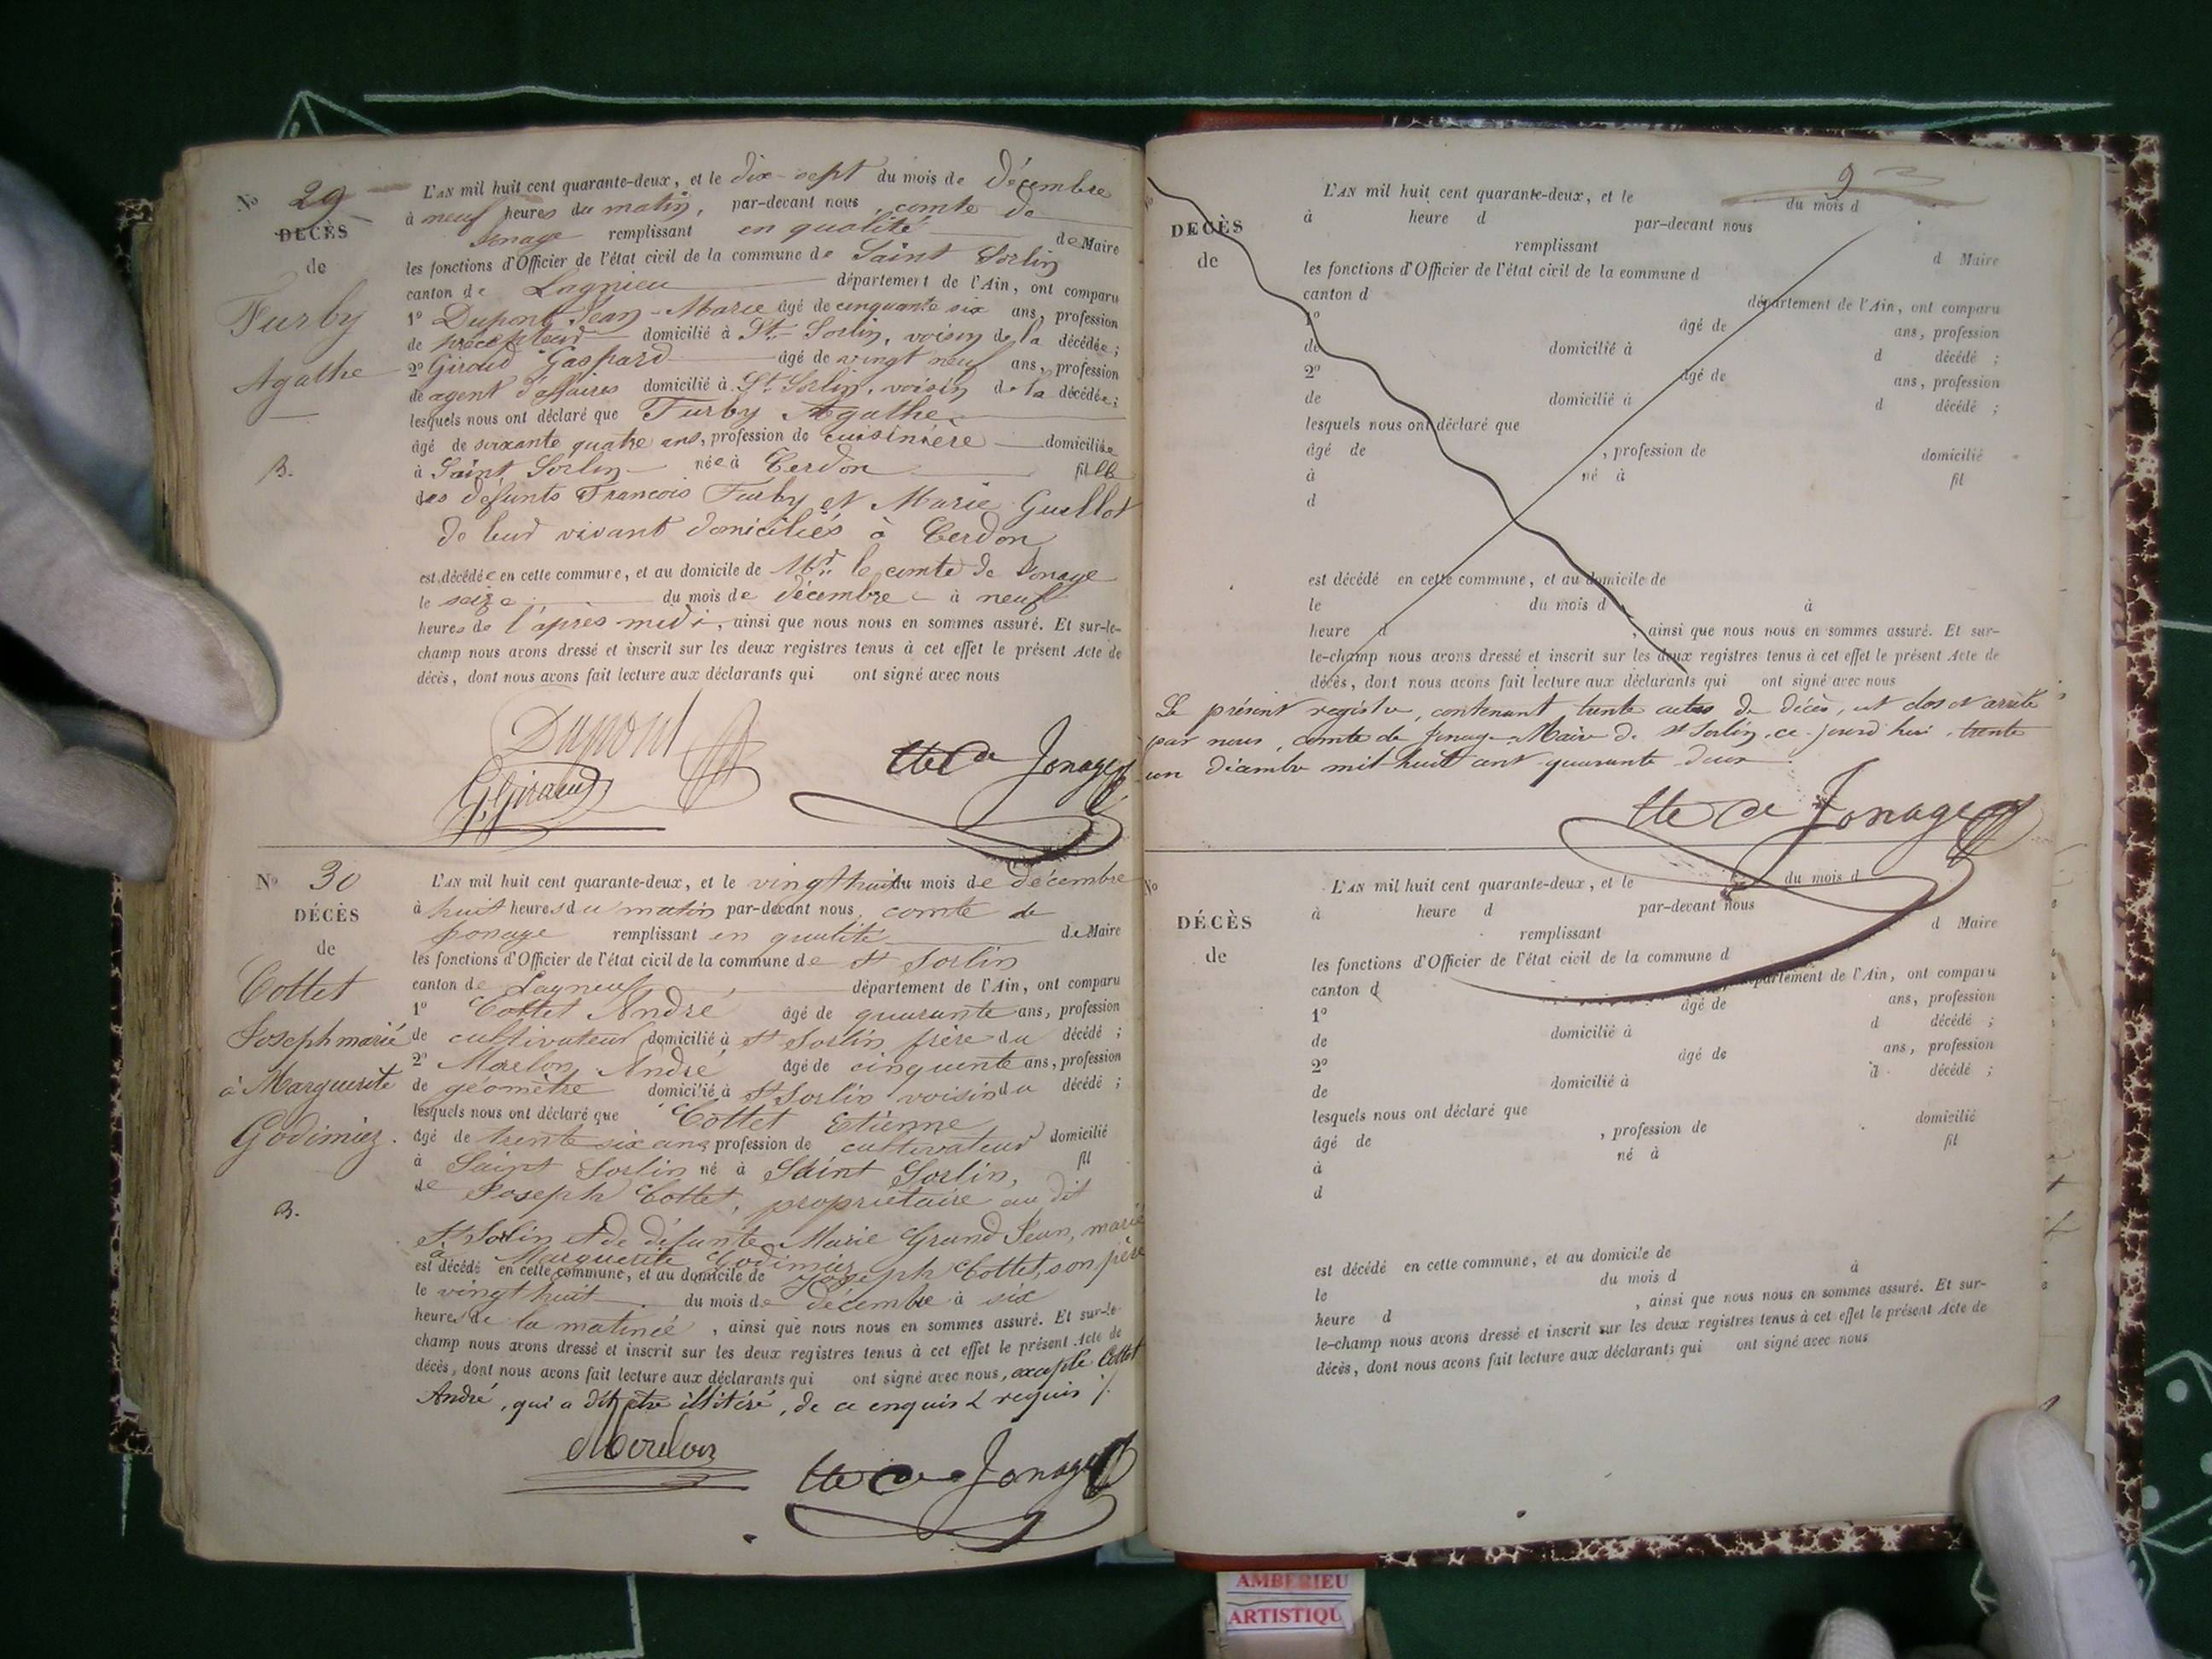 N° 29
DÉCÈS
de
Furby
Agathe
B.
L'AN mil huit cent quarante-deux, et le dix-sept du mois de décembre
à neuf heures du matin, par-devant nous, comte de
Jonage remplissant en qualité de Maire
les fonctions d'Officier de l'état civil de la commune de Saint Sorlin
canton de Lagnieu département de l'Ain, ont comparu
1° Dupont Jean-Marie âgé de cinquante six ans, profession
de précepteur domicilié à St. Sorlin, voisin de la décédée;
2° Giroud Gaspard âgé de vingt neuf ans, profession
de agent d'affaires domicilié à St. Sorlin, voisin de la décédée;
lesquels nous ont déclaré que Furby Agathe
âgé de soixante quatre ans, profession de cuisinière domiciliée
à Saint Sorlin née à Cerdon fille
des défunts François Furby et Marie Guillot
de leur vivant domiciliés à Cerdon
est décédée en cette commune, et au domicile de Mr. le comte de Jonage
le seize du mois de décembre à neuf
heures de l'après midi, ainsi que nous nous en sommes assuré. Et sur-le-
champ nous avons dressé et inscrit sur les deux registres tenus à cet effet le présent Acte de
décès, dont nous avons fait lecture aux déclarants qui ont signé avec nous
Dupont
G. Giraud
Cte de Jonage
N° 30
DÉCÈS
de
Cottet
Joseph marié
à Marguerite
Godimiez.
B.
L'AN mil huit cent quarante-deux, et le vingt huit du mois de décembre
à huit heures du matin par-devant nous, comte de
Jonage remplissant en qualité de Maire
les fonctions d'Officier de l'état civil de la commune de St Sorlin
canton de Lagneux département de l'Ain, ont comparu
1° Cottet André âgé de quarante ans, profession
de cultivateur domicilié à St Sorlin frère du décédé;
2° Morelon André âgé de cinquente ans, profession
de géomètre domicilié à St Sorlin voisin du décédé;
lesquels nous ont déclaré que Cottet Etienne
âgé de trente six ans, profession de cultivateur domicilié
à Saint Sorlin né à Saint Sorlin, fil
de Joseph Cottet, propriétaire au dit
St Sorlin et de défunte Marie Grand Jean, marié
à Marguerite Godimiez
est décédé en cette commune, et au domicile de Joseph Cottet, son père
le vingt huit du mois de décembre à six
heures de la matinée, ainsi que nous nous en sommes assuré. Et sur-le-
champ nous avons dressé et inscrit sur les deux registres tenus à cet effet le présent Acte de
décès, dont nous avons fait lecture aux déclarants qui ont signé avec nous, excepté Cottet
André, qui a dit être illitéré, de ce enquis & requis
Morelon
Cte de Jonage
9
N°
DÉCÈS
de
L'AN mil huit cent quarante-deux, et le du mois d
à heure d par-devant nous
remplissant d Maire
les fonctions d'Officier de l'état civil de la commune d
canton d département de l'Ain, ont comparu
1° âgé de ans, profession
de domicilié à d décédé ;
2° âgé de ans, profession
de domicilié à d décédé ;
lesquels nous ont déclaré que
âgé de , profession de domicilié
à né à fil
d
est décédé en cette commune, et au domicile de
le du mois d à
heure d , ainsi que nous nous en sommes assuré. Et sur-
le-champ nous avons dressé et inscrit sur les deux registres tenus à cet effet le présent Acte de
décès, dont nous avons fait lecture aux déclarants qui ont signé avec nous
Le présent registre, contenant trente actes de décès, est clos et arrêté
par nous, comte de Jonage Maire de St Sorlin, ce jourd'hui trente
un décembre mil huit cent quarante deux.
Cte de Jonage
N°
DÉCÈS
de
L'AN mil huit cent quarante-deux, et le du mois d
à heure d par-devant nous
remplissant d Maire
les fonctions d'Officier de l'état civil de la commune d
canton d département de l'Ain, ont comparu
1° âgé de ans, profession
de domicilié à d décédé ;
2° âgé de ans, profession
de domicilié à d décédé ;
lesquels nous ont déclaré que
âgé de , profession de domicilié
à né à fil
d
est décédé en cette commune, et au domicile de
le du mois d à
heure d , ainsi que nous nous en sommes assuré. Et sur-
le-champ nous avons dressé et inscrit sur les deux registres tenus à cet effet le présent Acte de
décès, dont nous avons fait lecture aux déclarants qui ont signé avec nous
AMBERIEU
ARTISTIQU